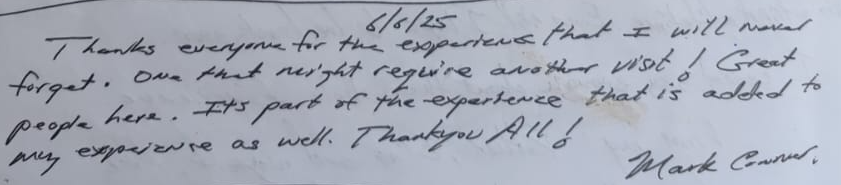 6/6/25
Thanks everyone for the experience that I will never
forget. One that might require another visit! Great
people here. Its part of the experience that is added to
my expeience as well. Thankyou All!
Mark Conner.